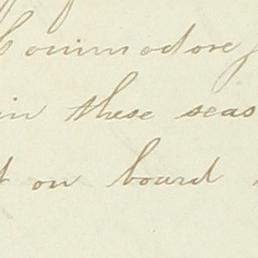 Commodore
in these seas
on board